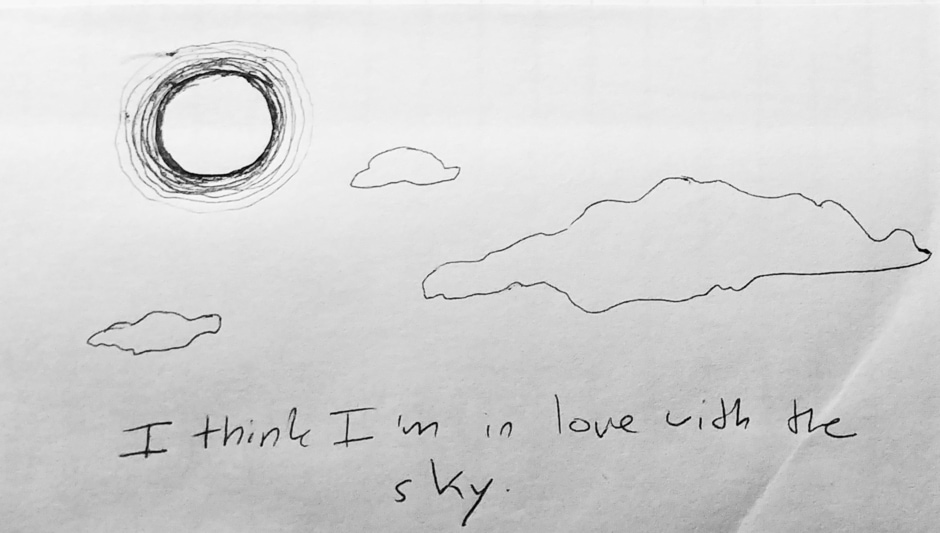 I think I'm in love with the
sky.